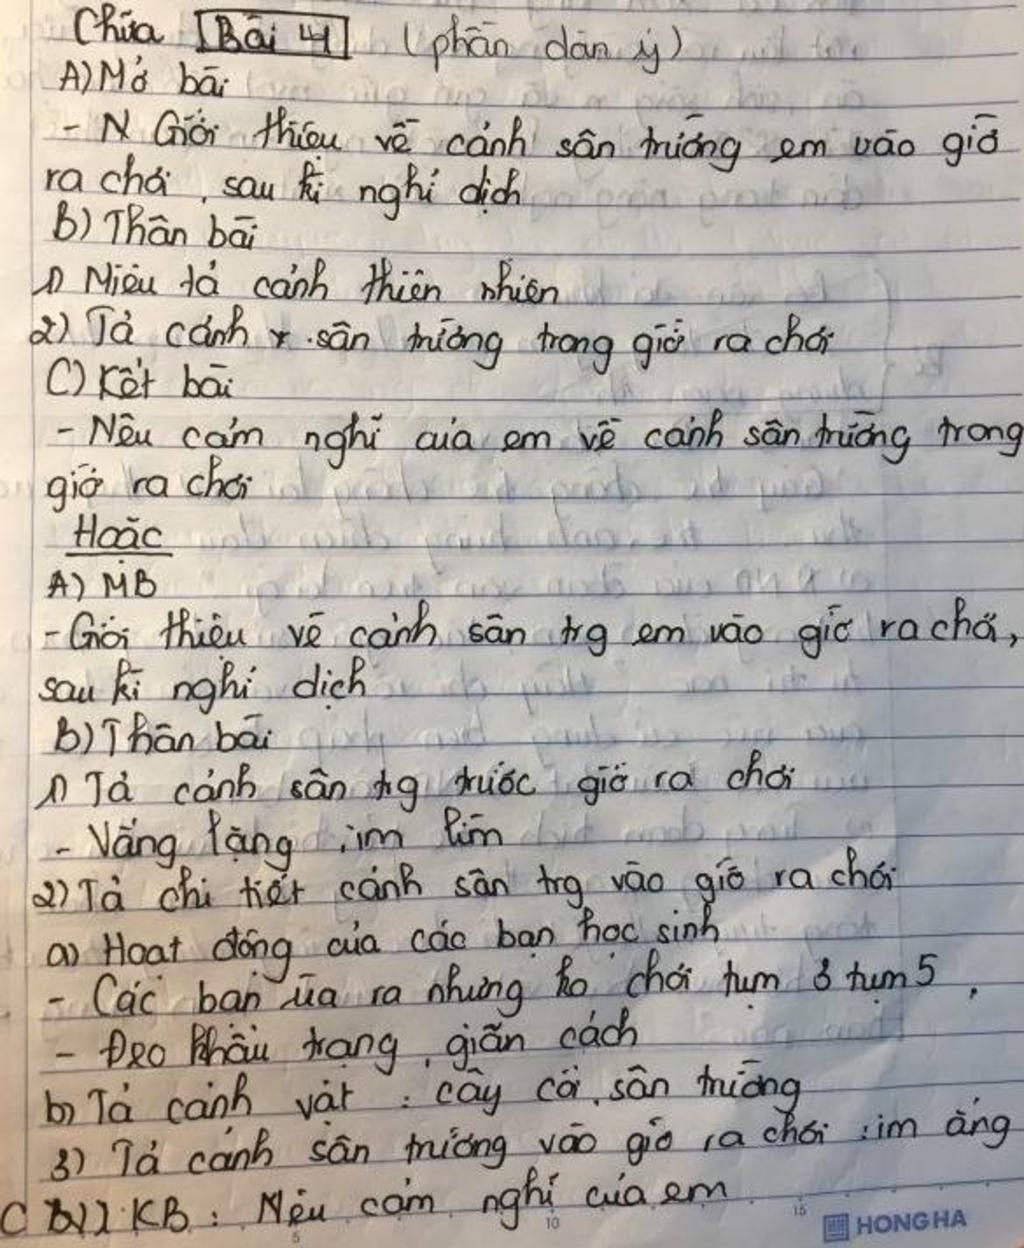 Chữa Bài 4 (phần dàn ý)
A) Mở bài
- N Giới thiệu về cảnh sân trường em vào giờ
ra chơi, sau kì nghỉ dịch
B) Thân bài
1) Miêu tả cảnh thiên nhiên
2) Tả cảnh sân trường trong giờ ra chơi
C) Kết bài
- Nêu cảm nghĩ của em về cảnh sân trường trong
giờ ra chơi
Hoặc
A) MB
- Giới thiệu về cảnh sân trg em vào giờ ra chơi,
sau kì nghỉ dịch
B) Thân bài
1) Tả cảnh sân trg trước giờ ra chơi
- Vắng lặng, im lìm
2) Tả chi tiết cảnh sân trg vào giờ ra chơi
a) Hoạt động của các bạn học sinh
- Các bạn ùa ra nhưng ko chơi tụm 3 tụm 5,
- Đeo khẩu trang, giãn cách
b) Tả cảnh vật: cây cối, sân trường
3) Tả cảnh sân trường vào giờ ra chơi: im ắng
C KB: Nêu cảm nghĩ của em
5 10 15 HONG HA